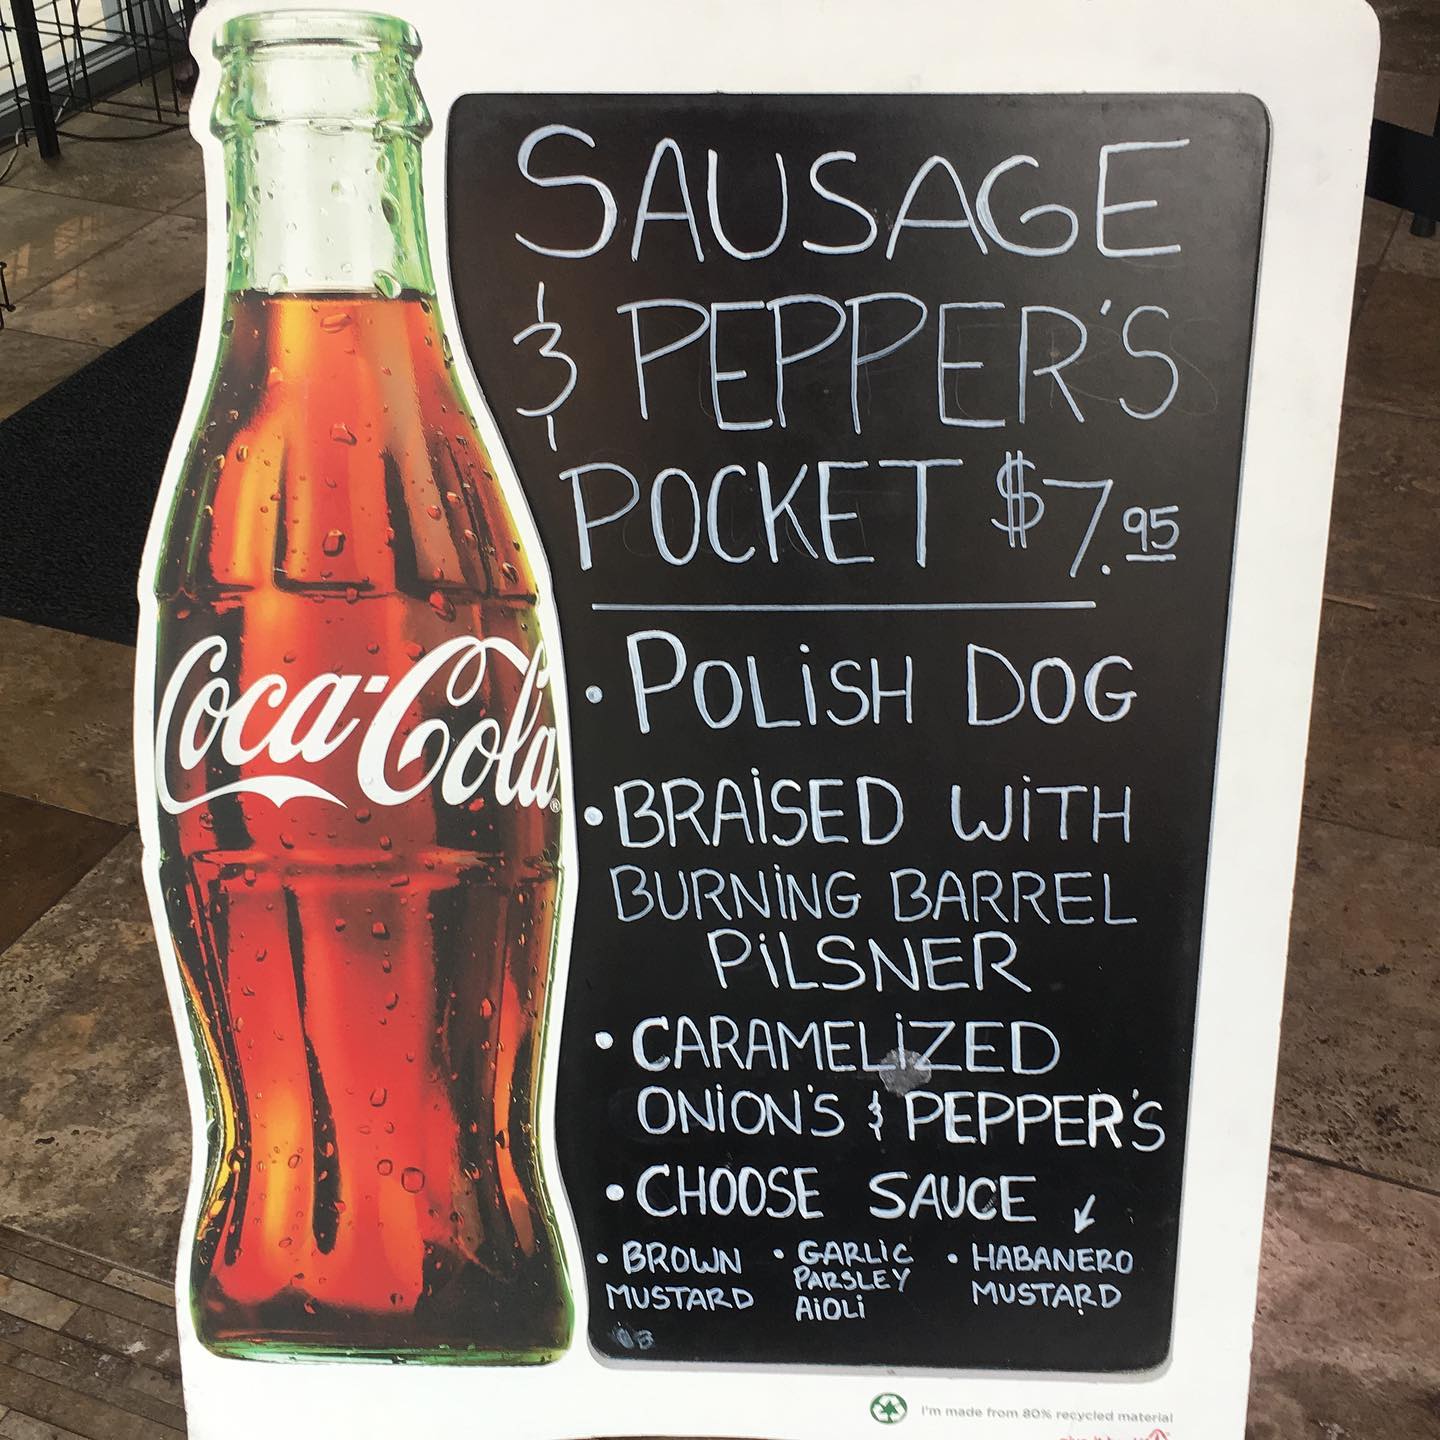 Coca-Cola®
SAUSAGE
& PEPPER'S
POCKET $7.95
• POLiSH DOG
• BRAiSED WiTH
BURNiNG BARREL
PiLSNER
• CARAMELiZED
ONiON'S & PEPPER'S
• CHOOSE SAUCE ↙
• BROWN
MUSTARD
• GARLiC
PARSLEY
AiOLi
• HABANERO
MUSTARD
I'm made from 80% recycled material